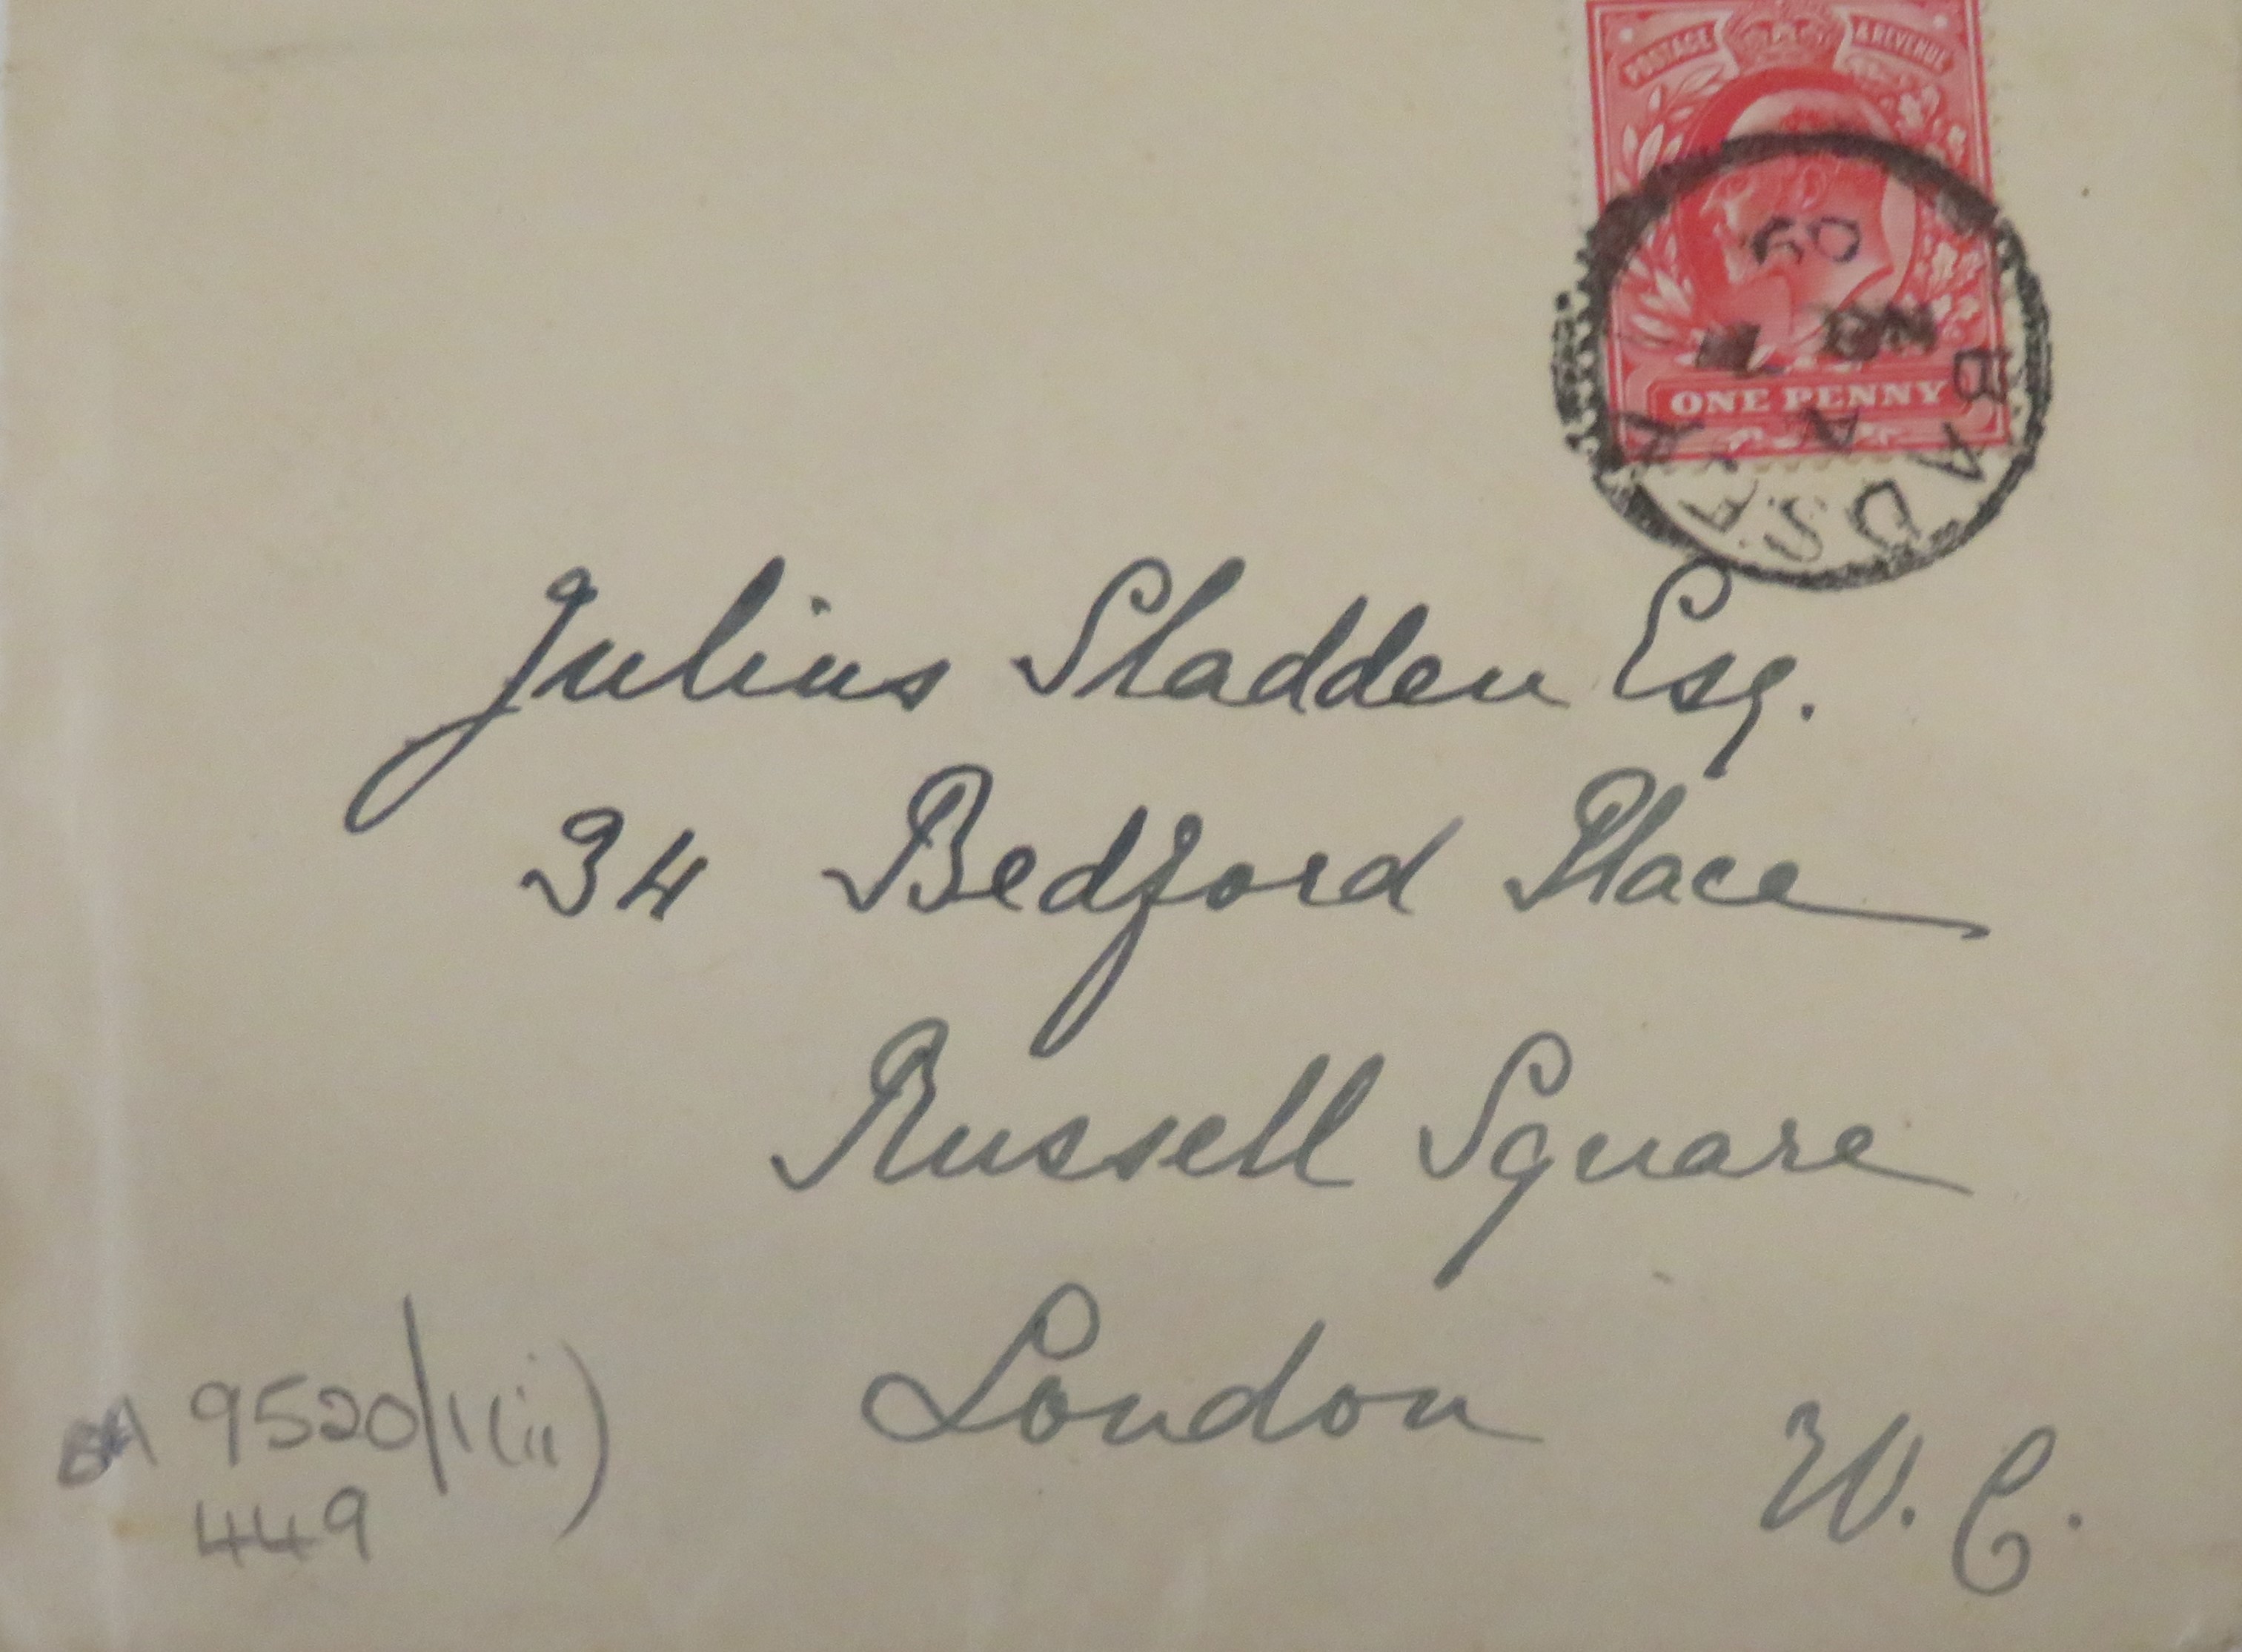 POSTAGE & REVENUE
ONE PENNY
BADSEY
A
Julius Sladden Esq.
34 Bedford Place
Russell Square
London
W. C.
9520/1(ii)
449